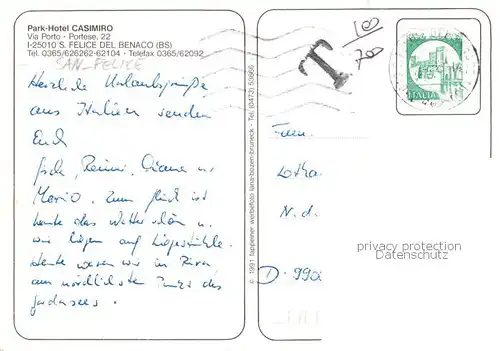 Park-Hotel CASIMIRO
Via Porto - Portese, 22
I-25010 S. FELICE DEL BENACO (BS)
Tel. 0365/626262-62104 - Telefax 0365/62092
SAN FELICE
Herzliche Urlaubsgrüße
aus Italien senden
Euch
Reimi, Diana u.
Mario. Zum Glück ist
heute das Wetter schön u.
wir liegen auf Liegestühle.
Heute waren wir in Riva
am nördlichsten Punkt des
Gardasees.
© 1991 tappeiner werbefoto lana-bozen/bruneck - Tel. (0473) 53666
T
100
700
ITALIA
Fam.
Lotha
N.d.
D-990
privacy protection
Datenschutz